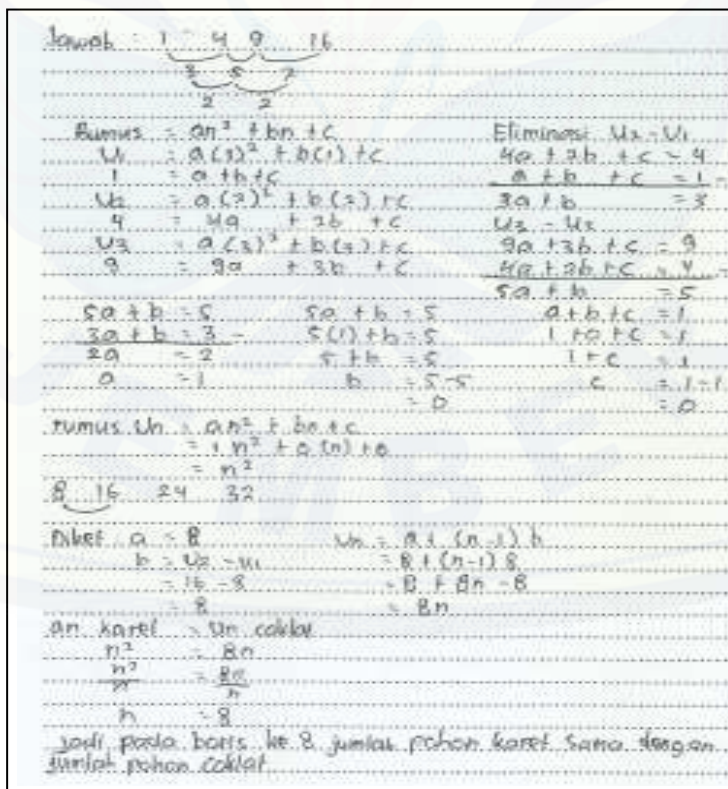 Jawab = 1 4 9 16
3 5 7
2 2
Rumus = an² + bn + c
U1 = a(1)² + b(1) + c
1 = a + b + c
U2 = a(2)² + b(2) + c
4 = 4a + 2b + c
U3 = a(3)² + b(3) + c
9 = 9a + 3b + c
Eliminasi U2 - U1
4a + 2b + c = 4
a + b + c = 1 -
3a + b = 3
U3 - U2
9a + 3b + c = 9
4a + 2b + c = 4 -
5a + b = 5
5a + b = 5
3a + b = 3 -
2a = 2
a = 1
5a + b = 5
5(1) + b = 5
5 + b = 5
b = 5 - 5
= 0
a + b + c = 1
1 + 0 + c = 1
1 + c = 1
c = 1 - 1
= 0
rumus Un = an² + bn + c
= 1 n² + 0 (n) + 0
= n²
8 16 24 32
Diket a = 8
b = U2 - U1
= 16 - 8
= 8
Un = a + (n - 1) b
= 8 + (n - 1) 8
= 8 + 8n - 8
= 8n
an karet = Un coklat
n² = 8n
n²/n = 8n/n
n = 8
Jadi pada baris ke 8 jumlah pohon karet sama dengan
jumlah pohon coklat